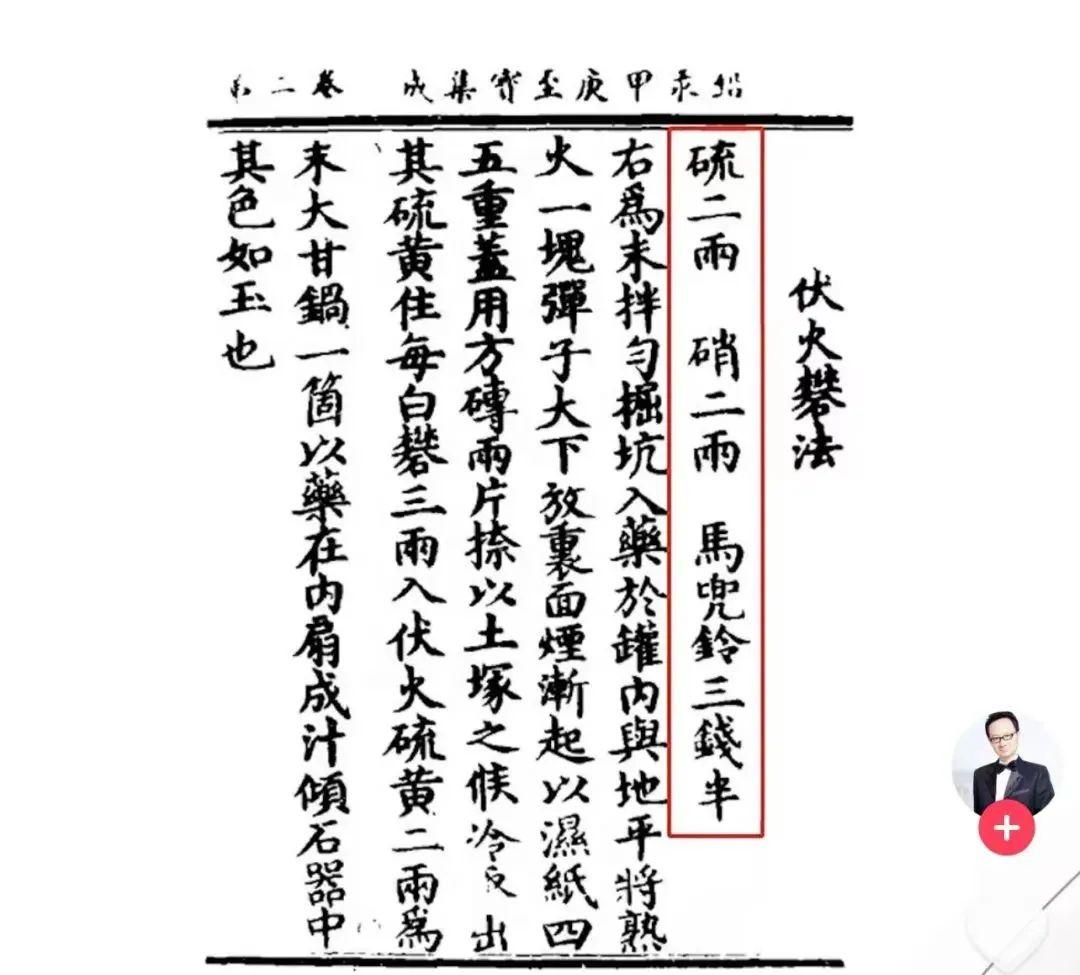 鉛汞甲庚至寳集成　卷二第
伏火礬法
硫二兩　硝二兩　馬兜鈴三錢半
右爲末拌勻掘坑入藥於罐内與地平將熟
火一塊彈子大下放裏面煙漸起以濕紙四
五重蓋用方磚兩片捺以土塚之候冷取出
其硫黄住每白礬三兩入伏火硫黄二兩爲
末大甘鍋一箇以藥在内扇成汁傾石器中
其色如玉也